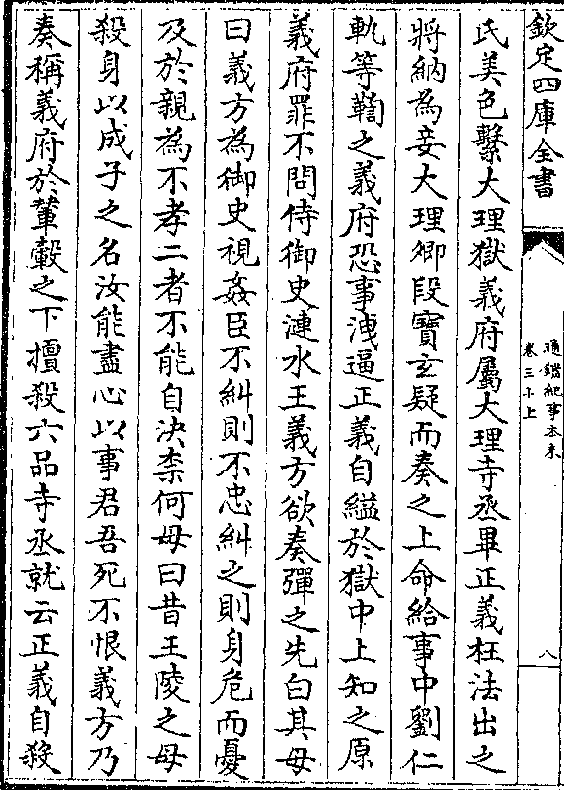 欽定四庫全書
通鑑紀事本末
卷三十上
八
氏美色繫大理獄義府屬大理寺丞畢正義枉法出之
將納為妾大理卿段寶玄疑而奏之上命給事中劉仁
軌等鞫之義府恐事洩逼正義自縊於獄中上知之原
義府罪不問侍御史漣水王義方欲奏彈之先白其母
曰義方為御史視姦臣不糾則不忠糾之則身危而憂
及於親為不孝二者不能自決柰何母曰昔王陵之母
殺身以成子之名汝能盡心以事君吾死不恨義方乃
奏稱義府於輦轂之下擅殺六品寺丞就云正義自殺